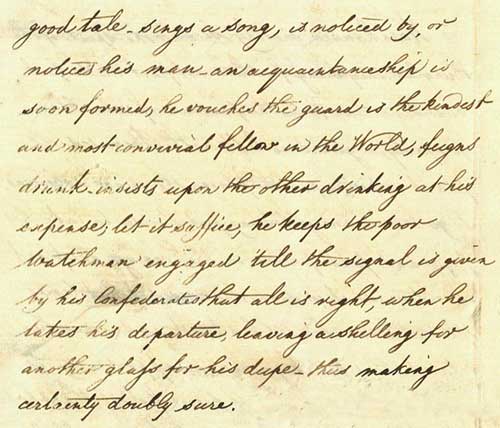 good tale - sings a song, is noticed by, or
notices his man - an acquaintanceship is
soon formed, he vouches the guard is the kindest
and most convivial fellow in the World, feigns
drunk - insists upon the other drinking at his
expense, let it suffice, he keeps the poor
Watchman engaged 'till the signal is given
by his Confederates that all is right, when he
takes his departure, leaving a shilling for
another glass for his dupe - thus making
certainty doubly sure.